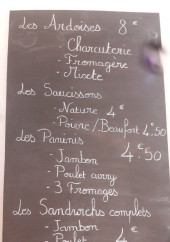 Les Ardoises 8€
- Charcuterie
- Fromagère
- Mixte
Les Saucissons
- Nature 4€
- Poivre/Beaufort 4€50
Les Paninis 4€50
- Jambon
- Poulet curry
- 3 Fromages
Les Sandwichs complets
- Jambon
- Poulet 4€